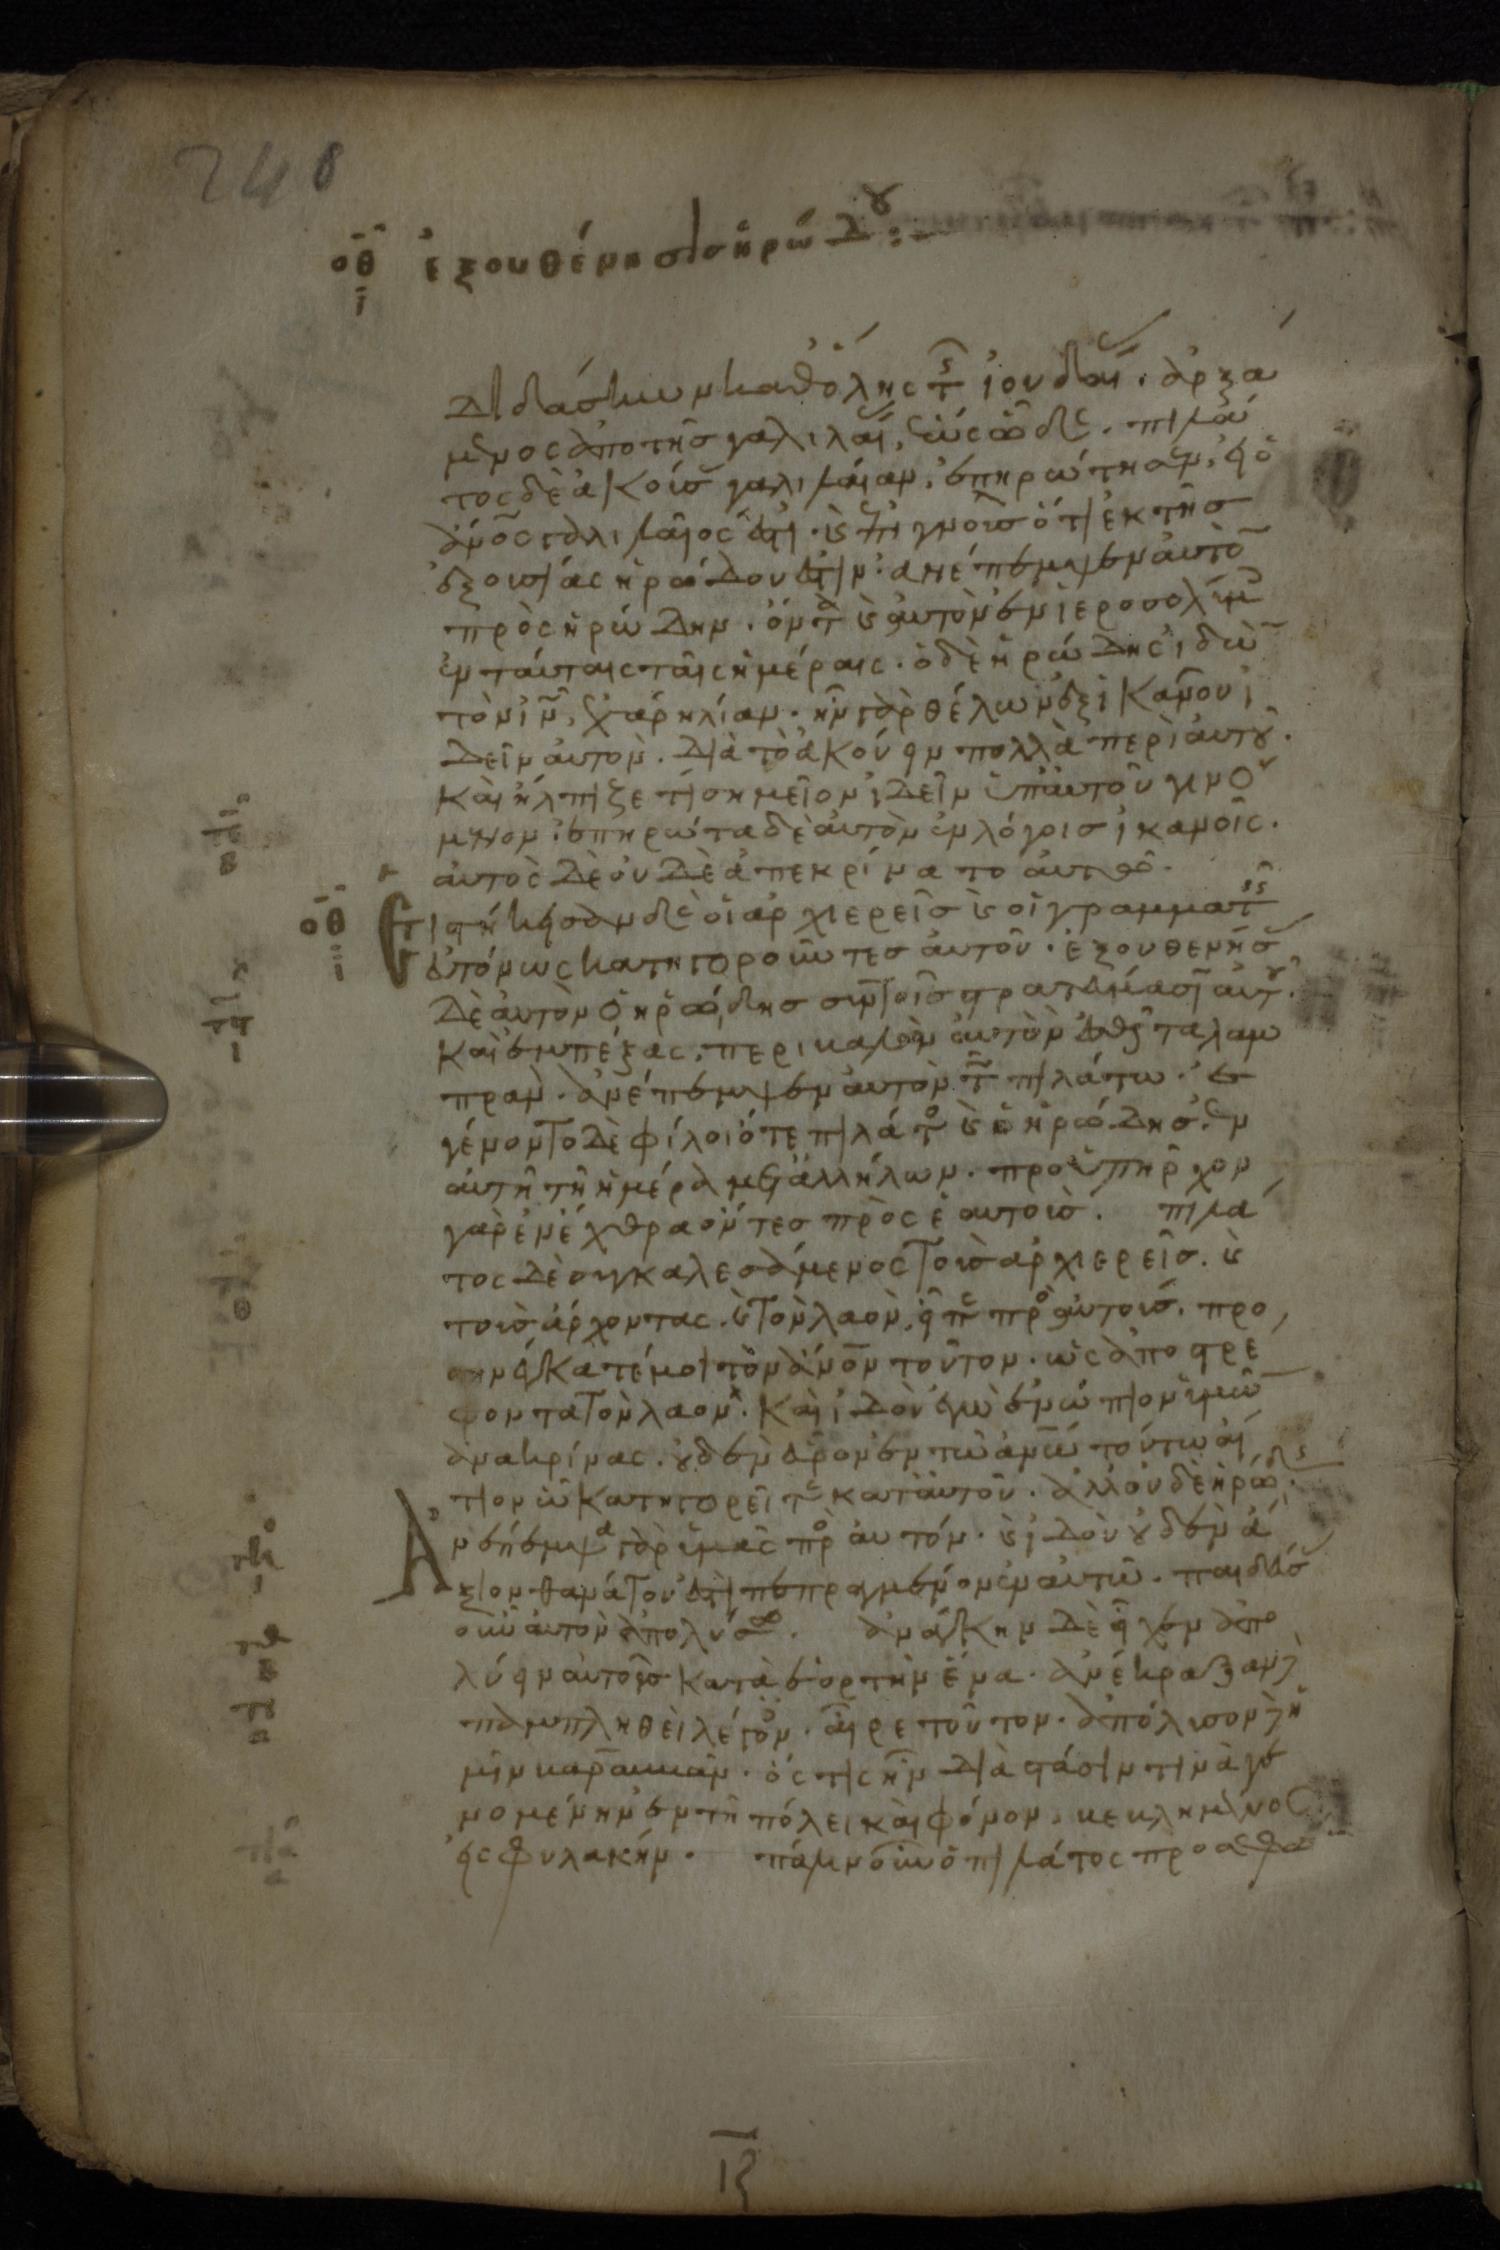 248
οθ ἐξουθένησις ἡρώδου :-
ι
διδάσκων καθ ὅλης τῆς ἰουδαί. ἀρξά
μενος ἀπὸ τῆς γαλιλαί, ἕως ὧδε. πιλά
τος δὲ ἀκούσ γαλιλαίαν, ἐπηρώτησεν, εἰ ὁ
ἄνος γαλιλαῖός ἐστι. καὶ ἐπιγνοὺς ὅτι ἐκ τῆς
ἐξουσίας ἡρώδου ἐστίν· ἀνέπεμψεν αὐτὸ
πρὸς ἡρώδην. ὄντα καὶ αὐτὸν ἐν ἱεροσολύμ
ἐν ταύταις ταῖς ἡμέραις. ὁ δὲ ἡρώδης ἰδὼ
τὸν ιν, ἐχάρη λίαν. ἦν γὰρ θέλων ἐξ ἱκανοῦ ἰ
δεῖν αὐτόν. διὰ τὸ ἀκούειν πολλὰ περὶ αὐτοῦ.
καὶ ἤλπιζέ τι σημεῖον ἰδεῖν ὑπ αὐτοῦ γινό
μενον. ἐπηρώτα δὲ αὐτὸν ἐν λόγοις ἱκανοῖς.
αὐτὸς δὲ οὐδὲ ἀπεκρίνατο αὐτῶ.
οθ Εἱστήκεσαν δὲ οἱ ἀρχιερεῖς καὶ οἱ γραμματεῖς
ια εὐτόνως κατηγοροῦντες αὐτοῦ. ἐξουθενήσ
δὲ αὐτὸν ὁ ἡρώδης σὺν τοῖς στρατεύμασιν αὐτοῦ.
καὶ ἐμπέξας, περιβαλὼν αὐτὸν ἐσθῆτα λαμ
πραν. ἀνέπεμψεν αὐτὸν τῶ πιλάτω. ἐ
γένοντο δὲ φίλοι ὅτε πιλάτος καὶ ὁ ἡρώδης, ἐν
αὐτῆ τῆ ἡμέρα μετ ἀλλήλων. προϋπῆρχον
γὰρ ἐν ἔχθρα ὄντες πρὸς ἑαυτούς. πιλά
τος δὲ συγκαλεσάμενος τοὺς ἀρχιερεῖς. καὶ
τοὺς ἄρχοντας. καὶ τὸν λαὸν, εἶπε πρὸς αὐτούς. προ
σηνέγκατέ μοι τὸν ἄνον τοῦτον. ὡς ἀποστρέ
φοντα τὸν λαον. καὶ ἰδοὺ ἐγὼ ἐνώπιον ὑμῶ
ἀνακρίνας. οὐδὲν εὗρον ἐν τῶ ἀνω τούτω αἴ
τιον ὧν κατηγορεῖτε κατ αὐτοῦ. ἀλλ οὐδὲ ἡρώδης.
Ἀνέπεμψα γὰρ ὑμᾶς πρὸς αὐτόν. καὶ ἰδοὺ οὐδὲν ἄ
ξιον θανάτου ἐστὶ πεπραγμένον ἐν αὐτῶ. παιδεύσ
οὖν αὐτὸν ἀπολύσω. ἀνάγκην δὲ εἶχεν ἀπο
λύειν αὐτοῖς κατὰ ἑορτὴν ἕνα. ἀνέκραξαν δὲ
παμπληθεὶ λέγον. αἶρε τοῦτον. ἀπόλυσον δὲ ἡ
μῖν βαραββᾶν. ὅς τις ἦν διὰ στάσιν τινὰ γε
νομένην ἐν τῆ πόλει καὶ φόνον, βεβλημένος
εἰς φυλακήν. πάλιν οὖν ὁ πιλάτος προσεφώ
ιζ